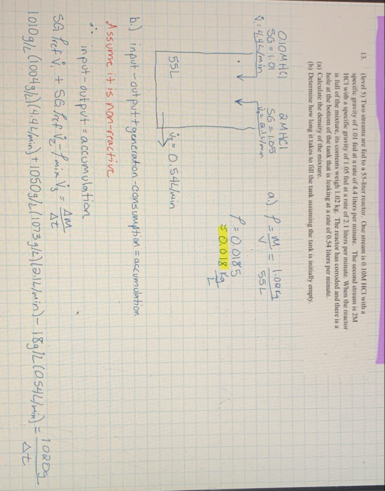 13. (level 3) Two streams are fed to a 55-liter reactor. One stream is 0.10M HCl with a
specific gravity of 1.01 fed at a rate of 4.4 liters per minute. The second stream is 2M
HCl with a specific gravity of 1.05 fed at a rate of 2.1 liters per minute. When the reactor
is full of the mixture, its contents weigh 1.02 kg. The reactor has corroded and there is a
hole at the bottom of the tank that is leaking at a rate of 0.54 liters per minute.
(a) Calculate the density of the mixture.
(b) Determine how long it takes to fill the tank assuming the tank is initially empty.
0.10M HCl
SG = 1.01
V̇₁ = 4.4 L/min
2M HCl
SG = 1.05
V̇₂ = 2.1 L/min
55L
V̇₃ = 0.54 L/min
a.) ρ = M/V = 1.02 kg/55L
ρ = 0.0185
= 0.018 kg/L
b.) input - output + generation - consumption = accumulation
Assume it is non-reactive
∴ input - output = accumulation
SG ρref V̇₁ + SG₂ ρref V̇₂ - ρmin V̇₃ = ΔM/Δt
1010g/L (1004 g/L)(4.4L/min) + 1050g/L (1073 g/L)(2.1L/min) - 18g/L (0.54L/min) = 1020g/Δt